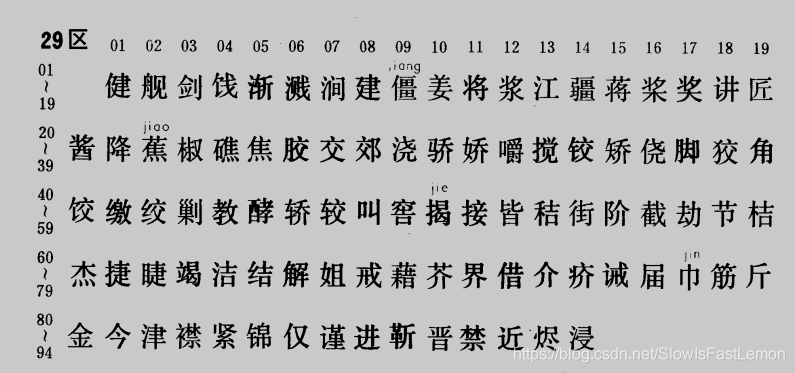 29区 01 02 03 04 05 06 07 08 09 10 11 12 13 14 15 16 17 18 19
jiang
01~19 健 舰 剑 饯 渐 溅 涧 建 僵 姜 将 浆 江 疆 蒋 桨 奖 讲 匠
jiao
20~39 酱 降 蕉 椒 礁 焦 胶 交 郊 浇 骄 娇 嚼 搅 铰 矫 侥 脚 狡 角
jie
40~59 饺 缴 绞 剿 教 酵 轿 较 叫 窖 揭 接 皆 秸 街 阶 截 劫 节 桔
jin
60~79 杰 捷 睫 竭 洁 结 解 姐 戒 藉 芥 界 借 介 疥 诫 届 巾 筋 斤
80~94 金 今 津 襟 紧 锦 仅 谨 进 靳 晋 禁 近 烬 浸
https://blog.csdn.net/SlowIsFastLemon